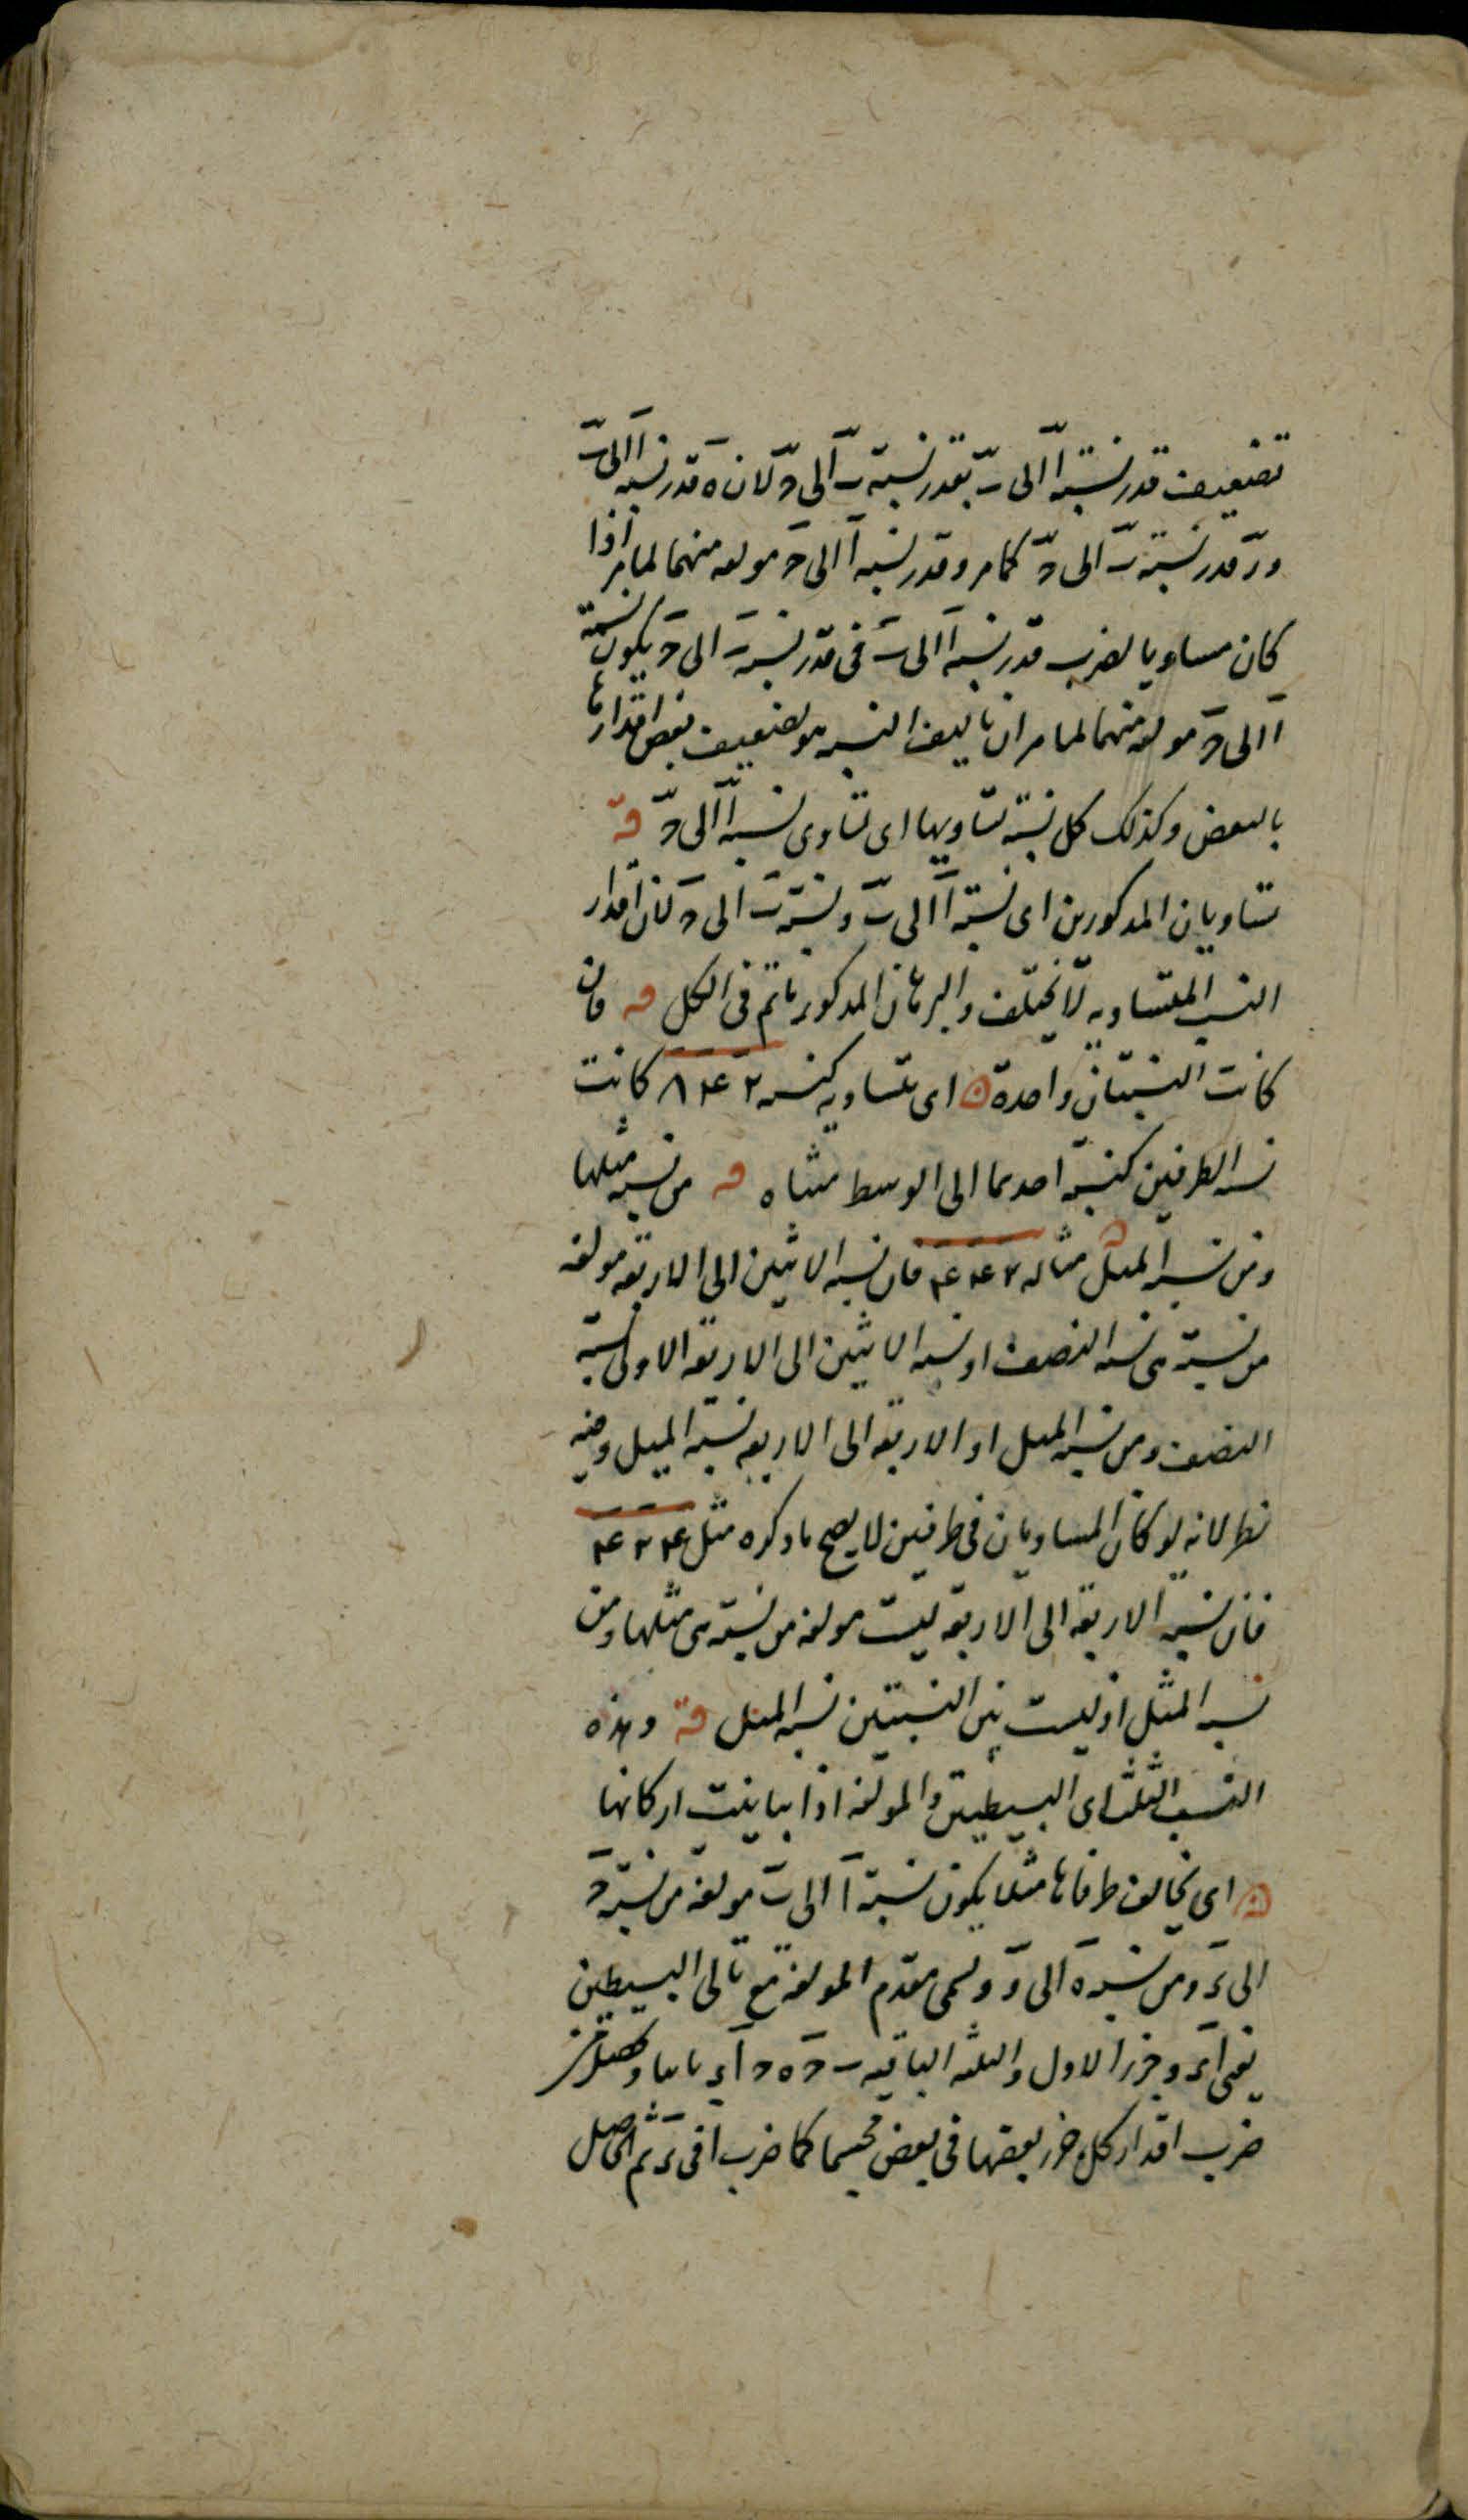 تضعيف قدر نسبة ا الى ب بقدر نسبة ب الى ح لان ه قدر نسبة ا الى ب
ور قدر نسبة ب الى ح كما مر وقدر نسبة ا الى ح مولفه منهما لما مر اذا
كان مساويا لضرب قدر نسبة ا الى ب فى قدر نسبة ب الى ح يكون نسبة
ا الى ح مولفه منهما لما مر ان تاليف النسبه هو تضعيف بعض اقدارها
بالبعض وكذلك كل نسبة تساويها اى تساوى نسبة ا الى ح
تساويان المذكورين اى نسبة ا الى ب ونسبة ب الى ح لان اقدار
النسب المتساويه لا تختلف والبرهان المذكور تام فى الكل فان
كانت النسبتان واحدة اى متساويه كنسبه ٢ ۴ ٨ كانت
نسبه الطرفين كنسبة احدهما الى الوسط مثناه من نسبه مثلها
ومن نسبه المثل مثاله ٢ ۴ ۴ فان نسبه الاثنين الى الاربعه مولفه
من نسبة هى نسبه النصف اذ نسبه الاثنين الى الاربعه الاولى نسبة
النصف ومن نسبه المثل اذ الاربعه الى الاربعه نسبة المثل وفيه
نظر لانه لو كان المتساويان فى طرفين لا يصح ما ذكره مثل ۴ ٢ ۴
فان نسبه الاربعه الى الاربعه ليست مولفه من نسبة هى مثلها ومن
نسبه المثل اذ ليست بين النسبتين نسبه المثل وهذه
النسب الثلث اى البسيطين والمولفه اذا تباينت اركانها
اى تخالف طرفاها مثلا يكون نسبة ا الى ب مولفه من نسبة ح
الى ء ومن نسبة ه الى و وسمى مقدم المولفه مع تالى البسيطين
يعنى ا ء و حزر الاول والثلثه الباقيه ب ح ه
ضرب اقدار كل حزر بعضها فى بعض مجسما كما ضرب ا فى ء ثم الحاصل